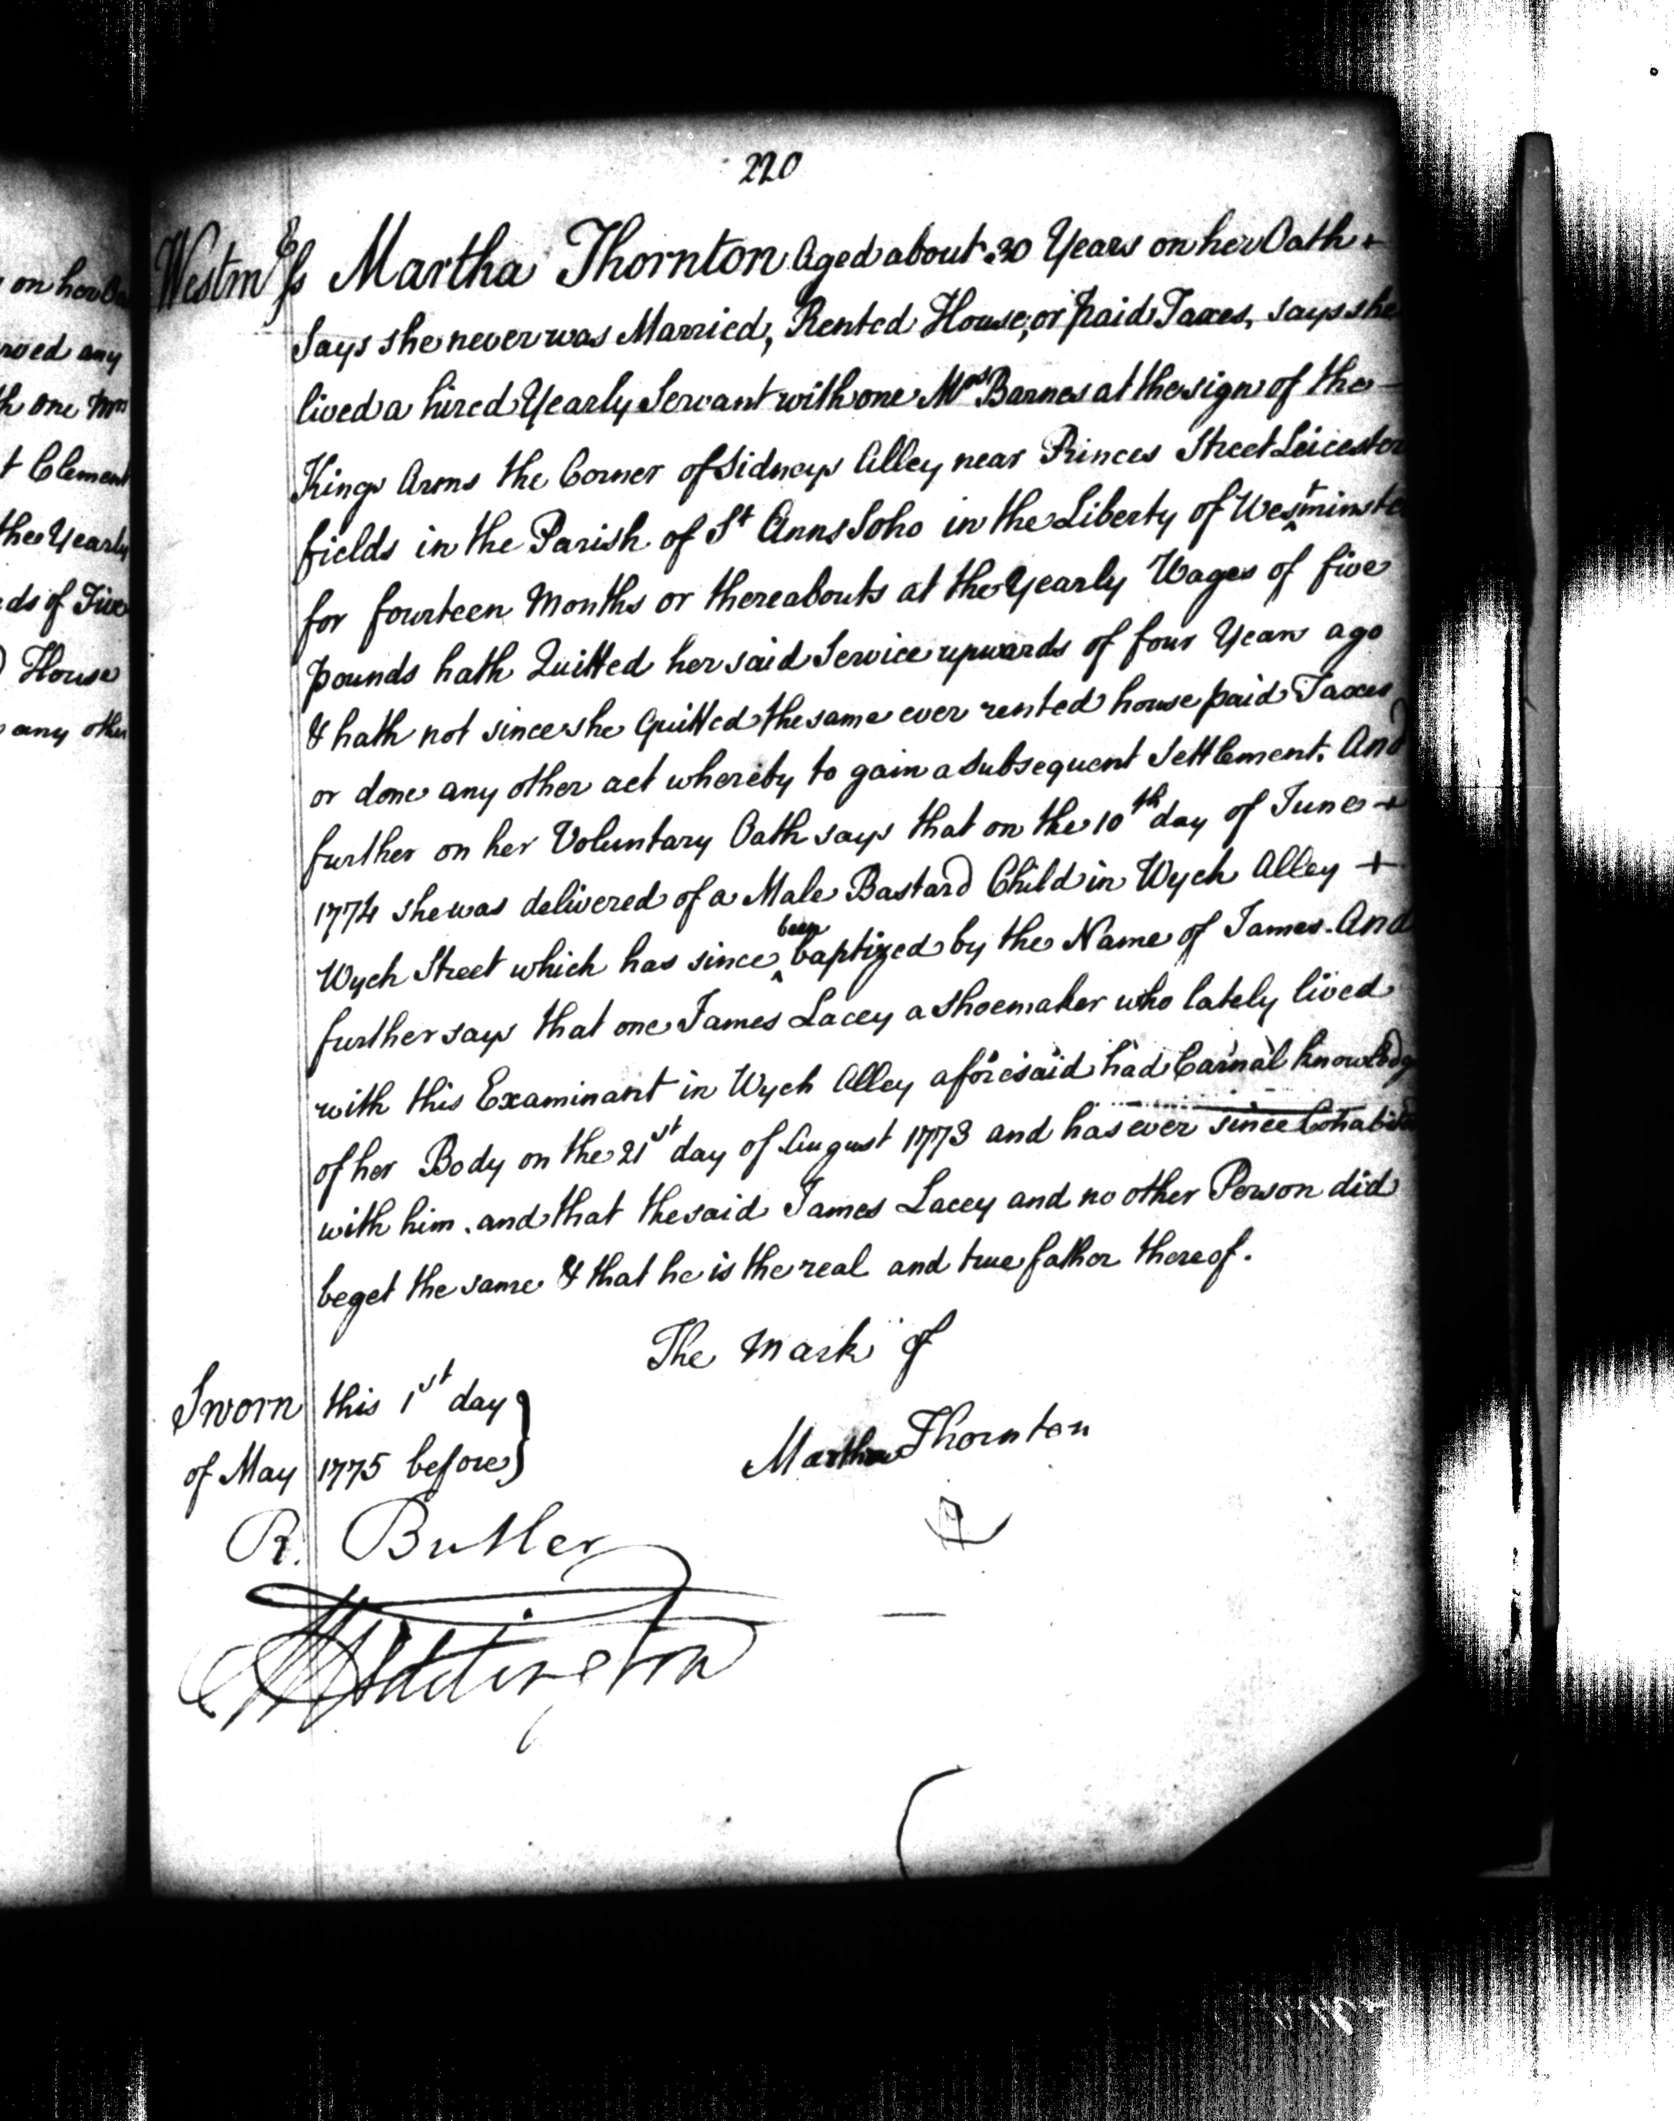 220
on her
rved any
th one Mrs
t Clement
the Yearly
ds of Five
House
any other
Westm ss Martha Thornton Aged about 30 Years on her Oath
Says she never was Married, Rented House, or paid Taxes, says she
lived a hired Yearly Servant with one Mrs Barnes at the sign of the
Kings Arms the Corner of Sidneys Alley near Princes Street Leicester
fields in the Parish of St Anns Soho in the Liberty of Westminster
for fourteen Months or thereabouts at the Yearly Wages of five
pounds hath Quitted her said Service upwards of four Years ago
& hath not since she Quitted the same ever rented house paid Taxes
or done any other act whereby to gain a subsequent Settlement. And
further on her Voluntary Oath says that on the 10th day of June
1774 she was delivered of a Male Bastard Child in Wych Alley
Wych Street which has since been baptized by the Name of James. And
further says that one James Lacey a Shoemaker who lately lived
with this Examinant in Wych Alley aforesaid had Carnal knowledge
of her Body on the 21st day of August 1773 and has ever since Cohabited
with him. and that the said James Lacey and no other Person did
beget the same & that he is the real and true father thereof.
The Mark of
Martha Thornton
Sworn this 1st day
of May 1775 before
R. Butler